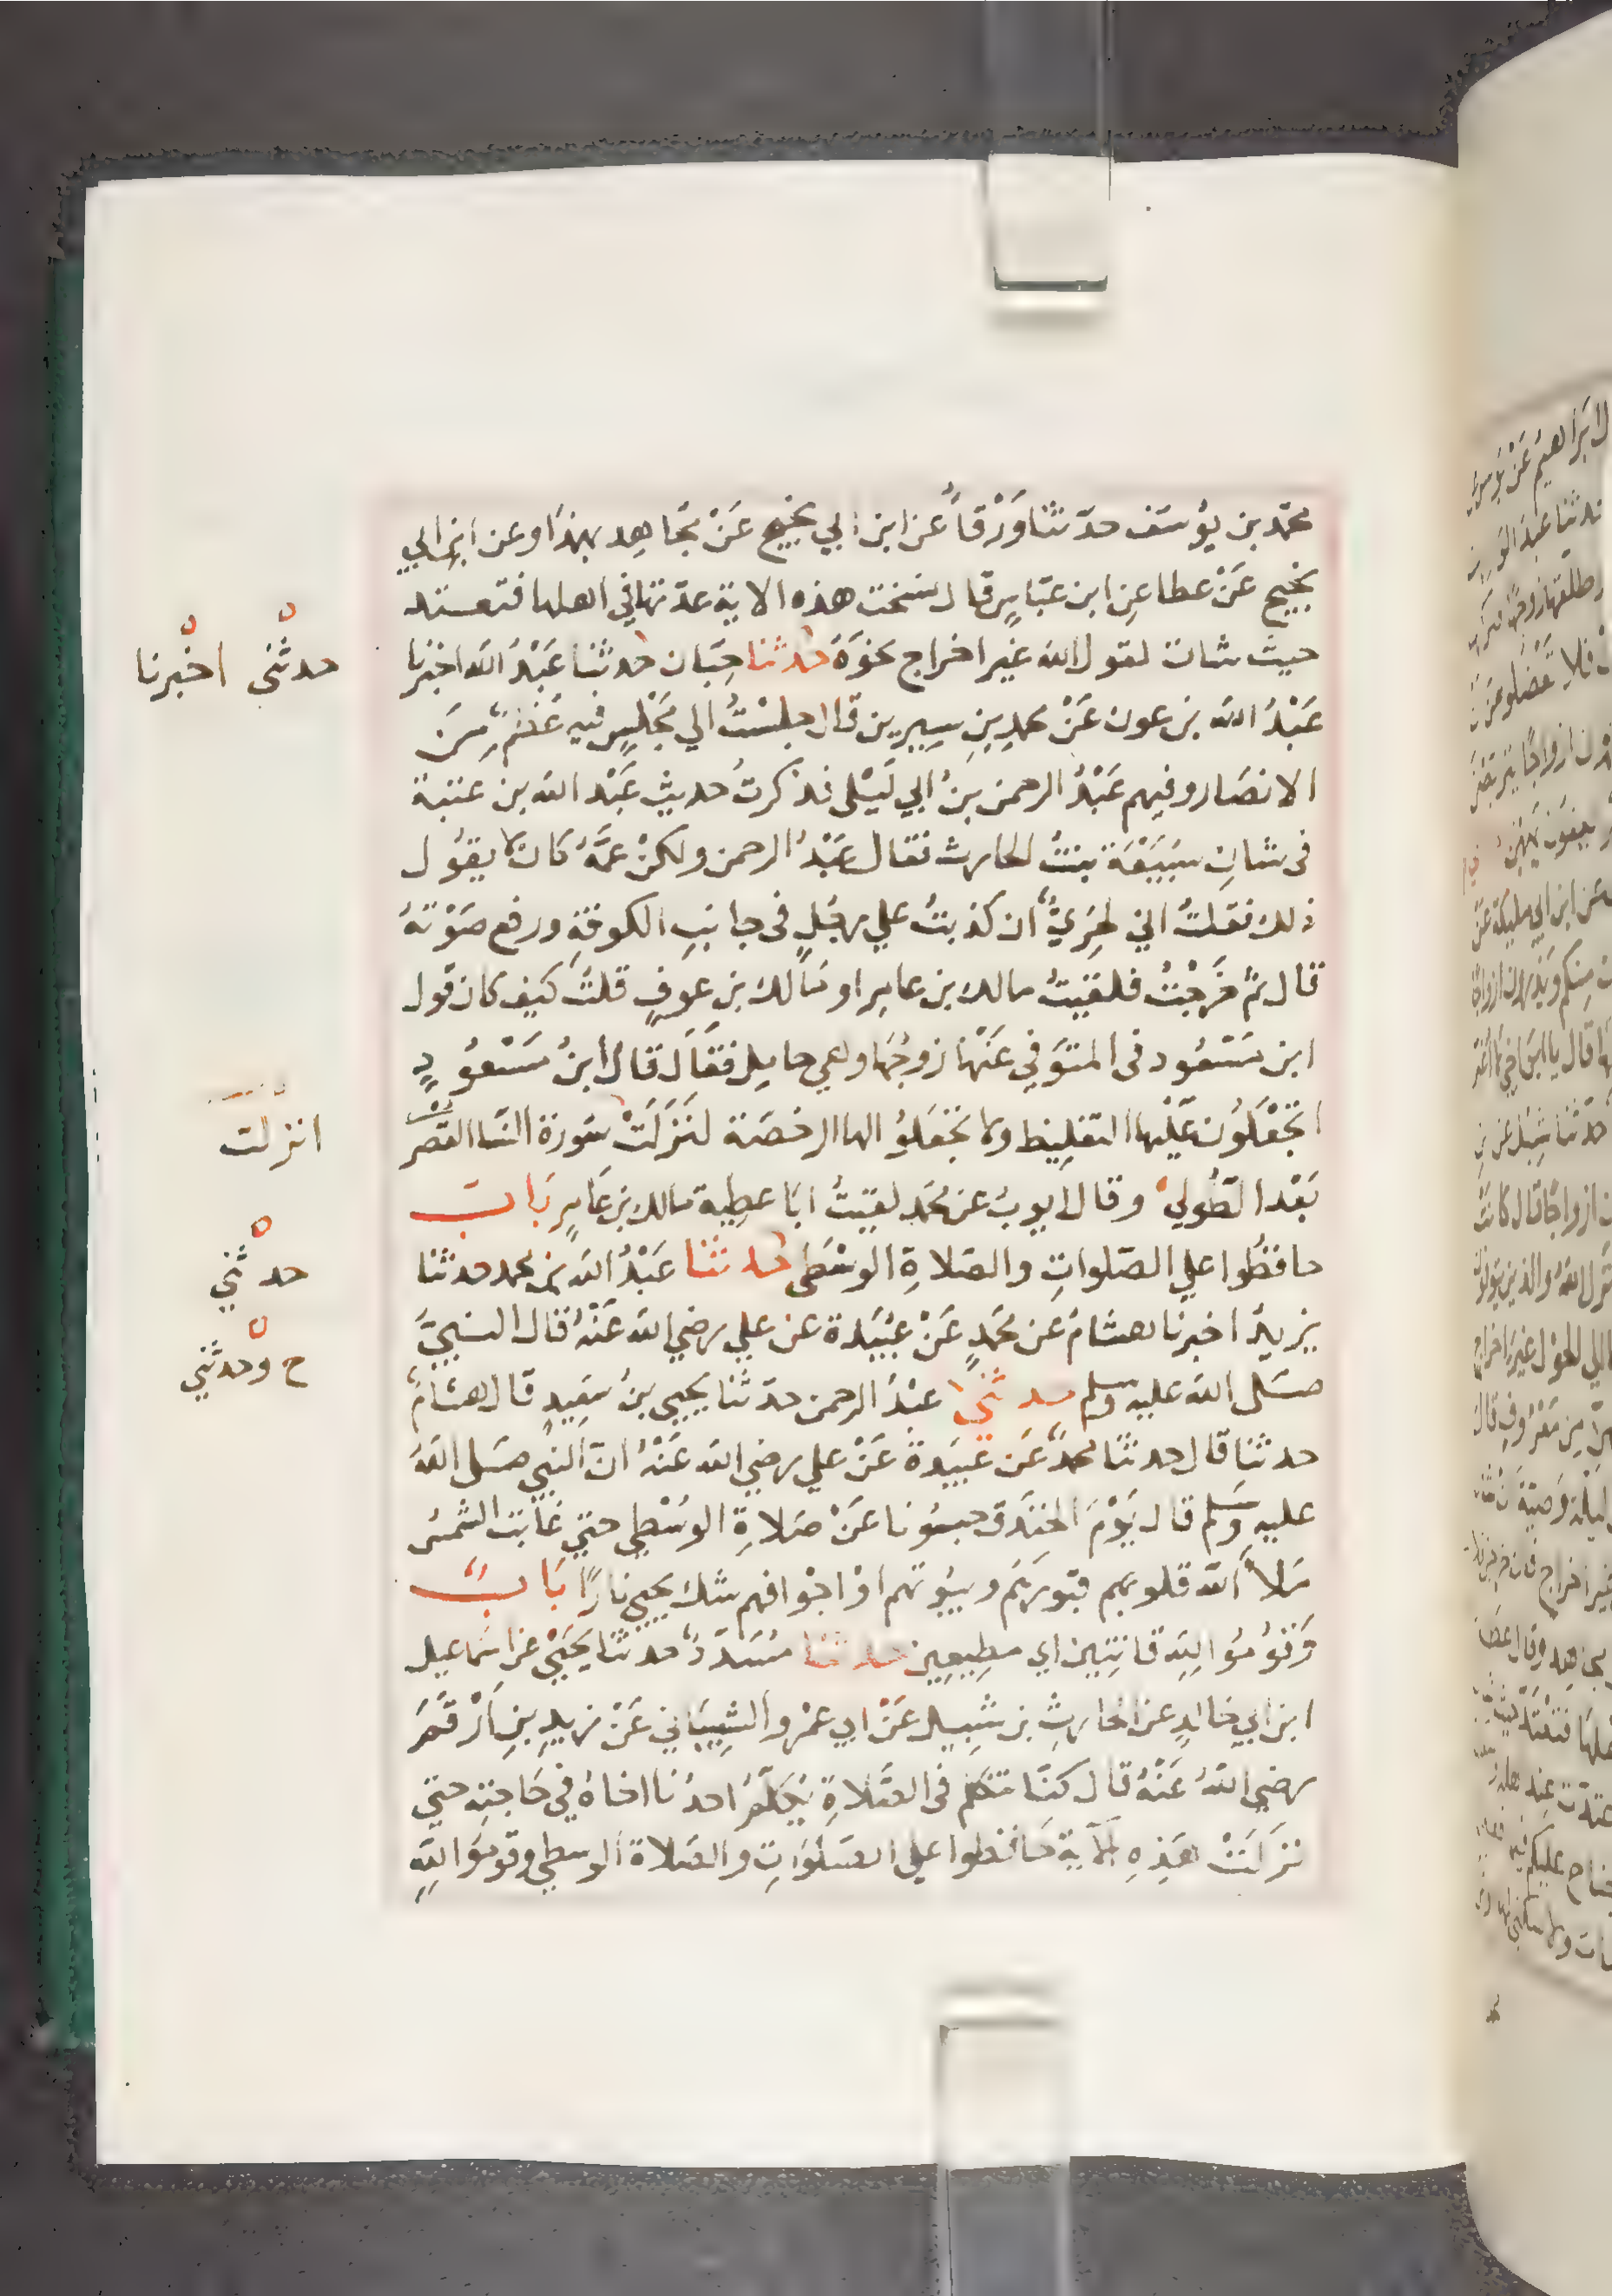 محمّد بن يوُسَف حدّثنا وَرْقاُ عن ابن ابي نجيح عَنْ مجُاهِد بهذَا وعن ابن ابي
نجيح عَنْ عطا عِن ابن عبّاسٍ قال نسخت هذه الاية عدتها في اهلها فتعتد
حيث شات لقول الله غيَر اخراج نحوَهَ حدثنا حِبَان حدثنا عَبْدُ الله اخبرنا
عَبْدُ الله بن عون عَنْ محمدِ بنِ سِيرين قال جلسْتُ الي مَجْلِسٍ فيه عُظْمٌ مِنَ
الانصَار وفيهم عَبْدُ الرحمن بنُ ابي لَيْلى فذكرتُ حديث عَبْد الله بن عتبة
فى شانِ سُبَيْعَة بنتُ الحارث فقال عَبْدُ الرحمن ولكنْ عمَّهُ كان لا يقوُل
ذلك فقلتُ اني لجَرِيٌّ ان كذبتُ علي رجُلٍ فى جانبِ الكوفةِ ورفع صَوْتَهُ
قال ثمّ خَرجْتُ فلقيتُ مالك بن عامِر او مَالك بن عوفٍ قلتُ كيف كان قول
ابن مَسْعُود فى المتوَفي عَنْها زوجُهَا وهي حامِل فقَالَ قال ابنُ مَسْعوُدٍ
اتجْعَلوُن عَليْها التغلِيظ ولا تجْعَلوُا لها الرخصَة لنَزَلَتْ سَورة النسَا القصْرى
بَعْد الطُولي وقال ايوبُ عن محُمَد لقيتُ ابَا عطِية مالك بن عَامِرٍ بَابٌ
حافظُوا علي الصّلواتِ والصّلاةِ الوسْطَى حدثنا عَبْدُ الله بن محمد حدثنا
يزيدُ اخبرنا هشامُ عن محُمَدٍ عَنْ عَبْيَدة عن علي رضي الله عَنْهُ قال النبيُّ
صَلى الله عليه وسلم حدثني عبْدُ الرحمن حدثنا يحيي بنُ سَعِيدٍ قال هشامٌ
حدثنا قال حدثنا محمدٌ عَن عَبيَدة عَنْ علي رضي الله عَنْهُ انّ النبي صَلى اللهُ
عليه وسَلم قال يَوْمَ الخَندَق حبسُونا عَنْ صَلاةِ الوُسْطي حتي غَابت الشمسُ
مَلأ اللهُ قلوبهم قبورَهَمُ وبيُوتهم اوْ اجْوافهم شك يحيي نارًا بَابٌ
وَقوُمُوُا لِلهِ قانِتِين اي مطِيعِين حدثنا مُسَدّدٌ حدثنا يَحيَيْ عن اسَماعيل
ابن ابي خالدٍ عن الحارِثِ بن شُبيل عَنْ ابي عمْرو الشيبَاني عَنْ زيدِ بنِ ارْقَمَ
رضي اللهُ عَنْهُ قال كنّا نتكلم فى الصَّلاةِ يُكَلّمُ احدُنا اخاهُ في حَاجتِه حتي
نزَلَتْ هَذِهِ الآية حَافظوا علي الصَلوَاتِ والصَلاة الوسطي وقوموُا لِلهِ
حدثني اخبرنا
انزلت
حدثني
ح وحدثني